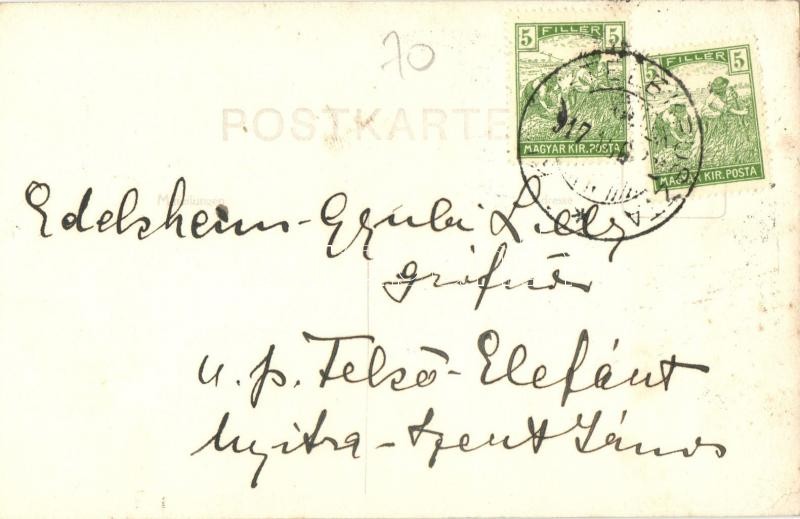 70
5 FILLÉR 5
MAGYAR KIR. POSTA
5 FILLÉR 5
MAGYAR KIR. POSTA
917
POSTKARTE
Mitteilungen
Edelsheim-Gyulai Lilly
grófnő
u. p. Felső-Elefánt
Nyitra-Szent János